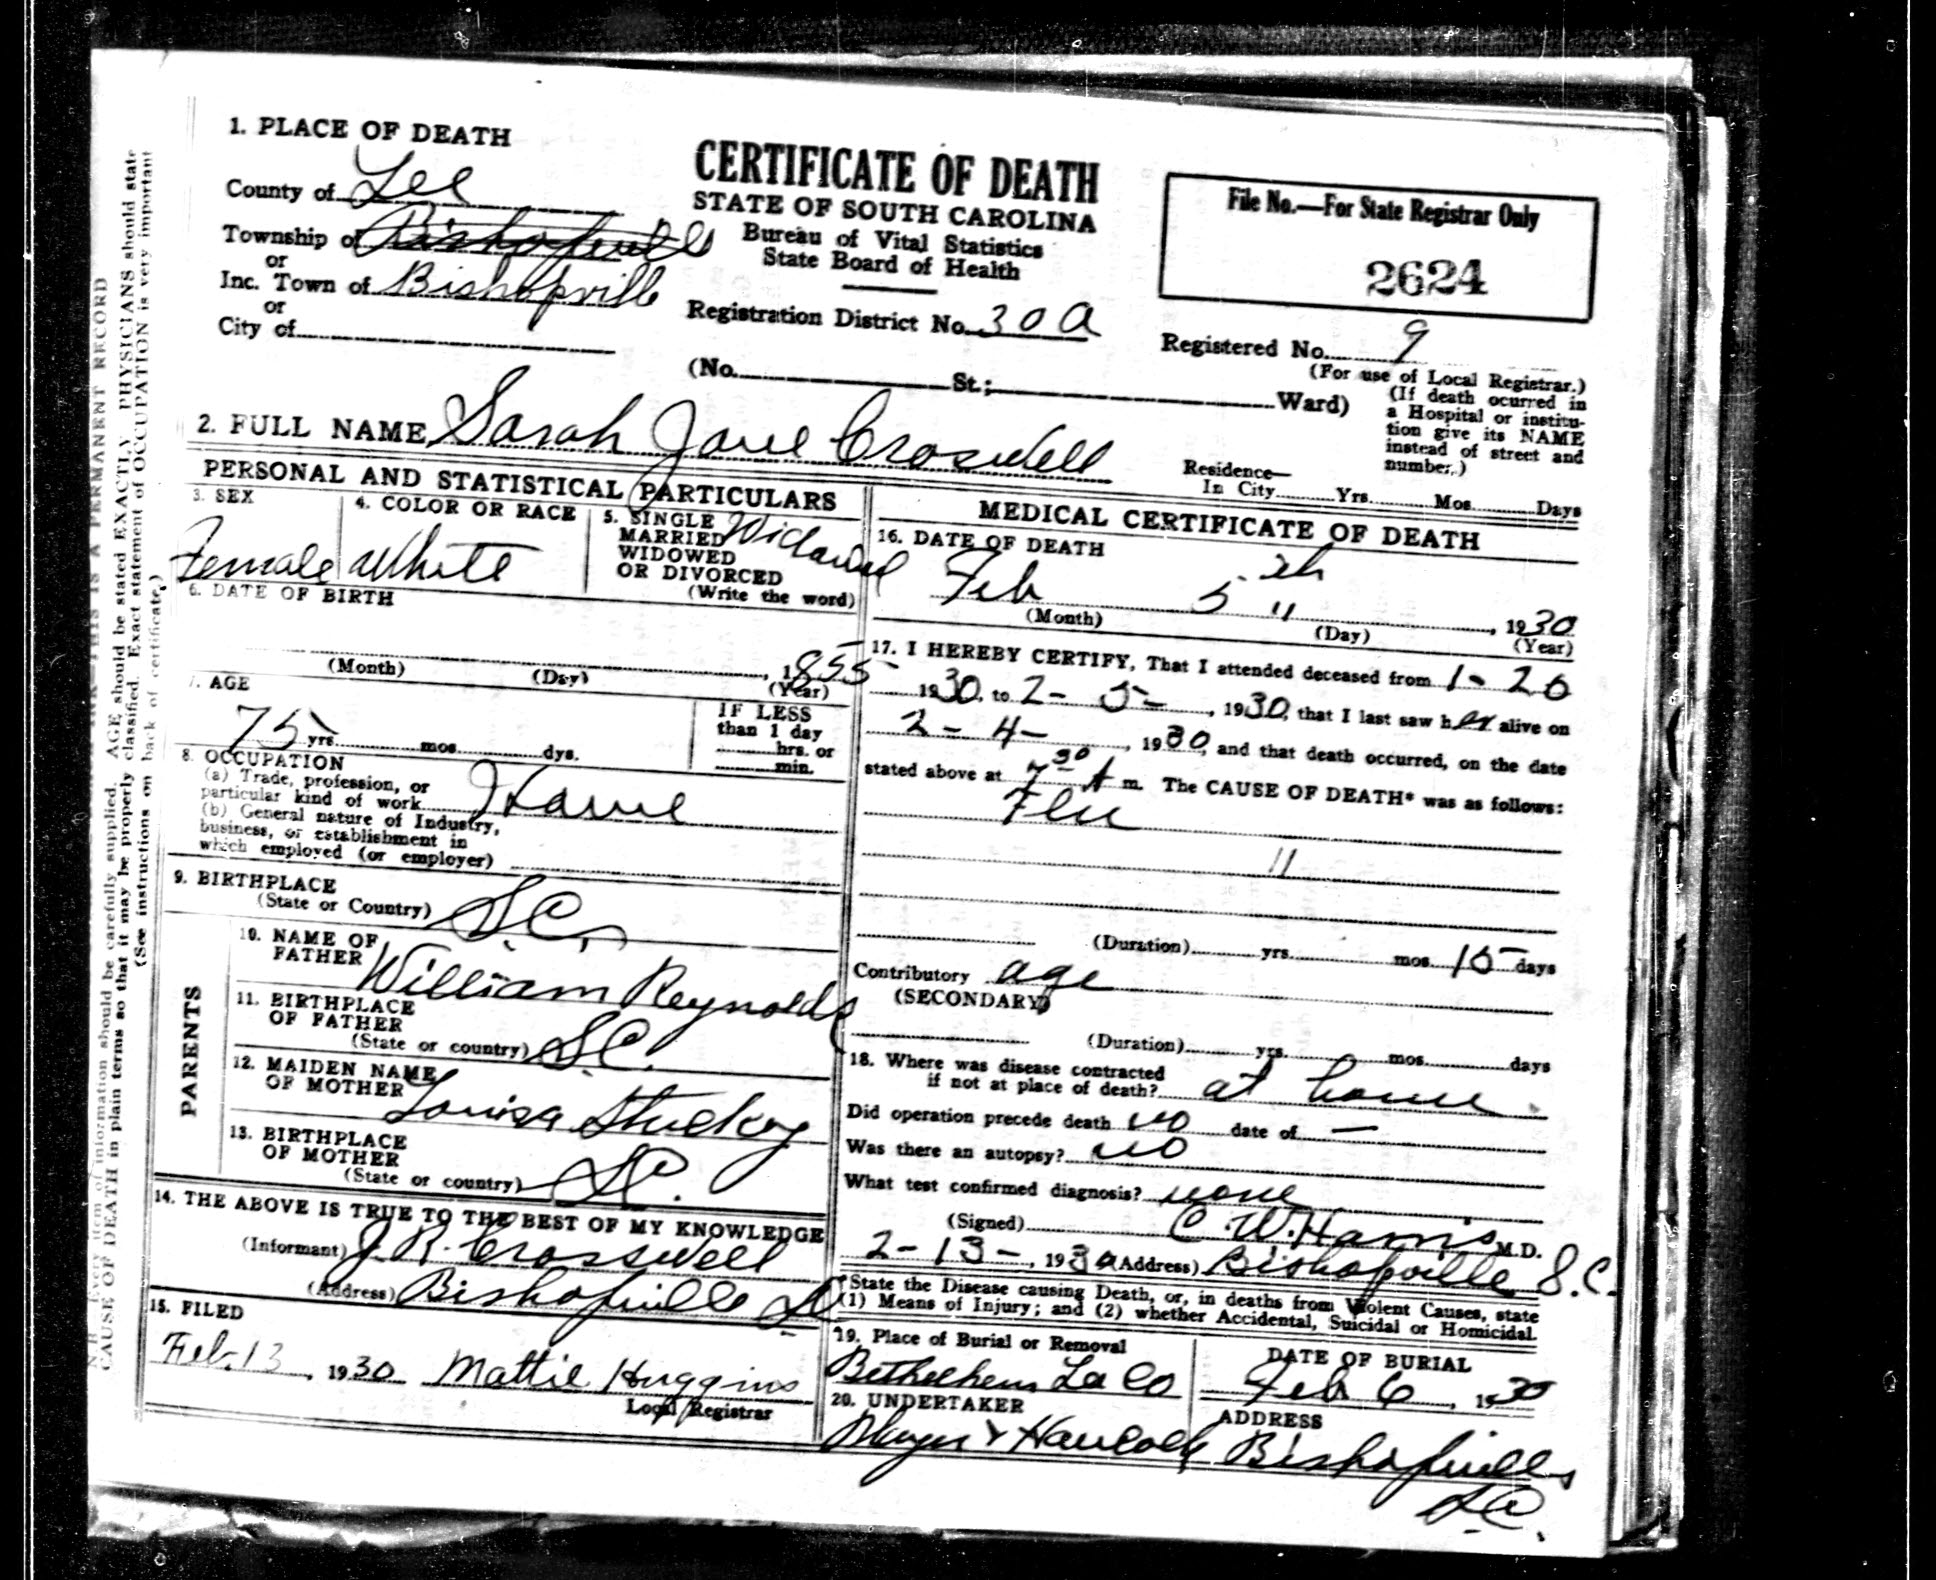 1. PLACE OF DEATH
County of Lee
Township of Bishopville
or
Inc. Town of Bishopville
or
City of
CERTIFICATE OF DEATH
STATE OF SOUTH CAROLINA
Bureau of Vital Statistics
State Board of Health
Registration District No. 30 A
(No. St.; Ward)
File No.—For State Registrar Only
2624
Registered No. 9
(For use of Local Registrar.)
(If death ocurred in
a Hospital or institu-
tion give its NAME
instead of street and
number.)
2. FULL NAME Sarah Jane Croswell
Residence—
In City Yrs. Mos. Days
PERSONAL AND STATISTICAL PARTICULARS
3. SEX
Female
4. COLOR OR RACE
White
5. SINGLE
MARRIED
WIDOWED
OR DIVORCED
(Write the word)
Widowed
6. DATE OF BIRTH
, 1855
(Month) (Day) (Year)
7. AGE
75 yrs. mos. dys.
IF LESS
than 1 day
hrs. or
min.
8. OCCUPATION
(a) Trade, profession, or
particular kind of work Home
(b) General nature of Industry,
business, or establishment in
which employed (or employer)
9. BIRTHPLACE
(State or Country) S.C.
PARENTS
10. NAME OF
FATHER William Reynolds
11. BIRTHPLACE
OF FATHER
(State or country) S.C.
12. MAIDEN NAME
OF MOTHER Louisa Stuckey
13. BIRTHPLACE
OF MOTHER
(State or country) S.C.
14. THE ABOVE IS TRUE TO THE BEST OF MY KNOWLEDGE
(Informant) J. R. Crosswell
(Address) Bishopville SC
15. FILED
Feb. 13, 1930 Mattie Huggins
Local Registrar
MEDICAL CERTIFICATE OF DEATH
16. DATE OF DEATH
Feb 5 th , 1930
11
(Month) (Day) (Year)
17. I HEREBY CERTIFY, That I attended deceased from 1-20
1930, to 2-5-, 1930, that I last saw her alive on
2-4-, 1930, and that death occurred, on the date
stated above at 7 30 A m. The CAUSE OF DEATH* was as follows:
Flu
11
(Duration) yrs. mos. 15 days
Contributory age
(SECONDARY)
(Duration) yrs. mos. days
18. Where was disease contracted
if not at place of death? at home
Did operation precede death no date of —
Was there an autopsy? no
What test confirmed diagnosis? none
(Signed) C. W. Harris M.D.
2-13-, 1930 (Address) Bishopville, S.C.
*State the Disease causing Death, or, in deaths from Violent Causes, state
(1) Means of Injury; and (2) whether Accidental, Suicidal or Homicidal.
19. Place of Burial or Removal
Bethlehem Co
DATE OF BURIAL
Feb 6, 1930
20. UNDERTAKER
Hancock
ADDRESS
Bishopville
S.C.
Every item of information should be carefully supplied. AGE should be stated EXACTLY, PHYSICIANS should state
CAUSE OF DEATH in plain terms so that it may be properly classified. Exact statement of OCCUPATION is very important
(See instructions on back of certificate.)
THIS IS A PERMANENT RECORD